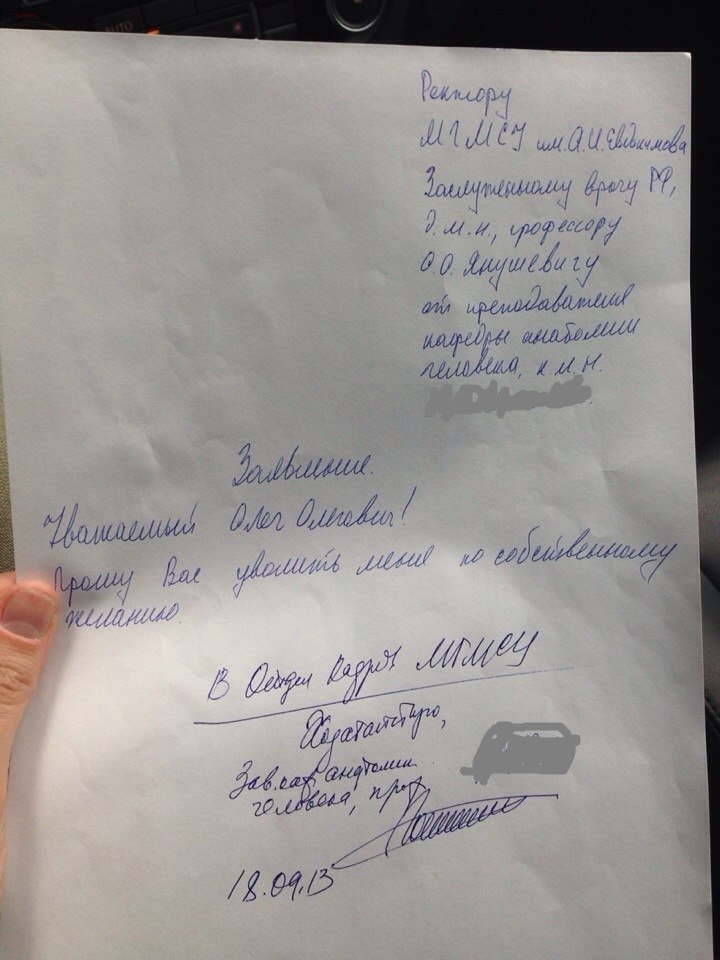 Ректору
МГМСУ им. А.И. Евдокимова
Заслуженному врачу РФ,
д.м.н., профессору
О.О. Янушевичу
от преподавателя
кафедры анатомии
человека, к.м.н.
Заявление.
Уважаемый Олег Олегович!
Прошу Вас уволить меня по собственному
желанию.
В Отдел кадров МГМСУ
Ходатайствую,
Зав. каф. анатомии
человека, проф.
18.09.13